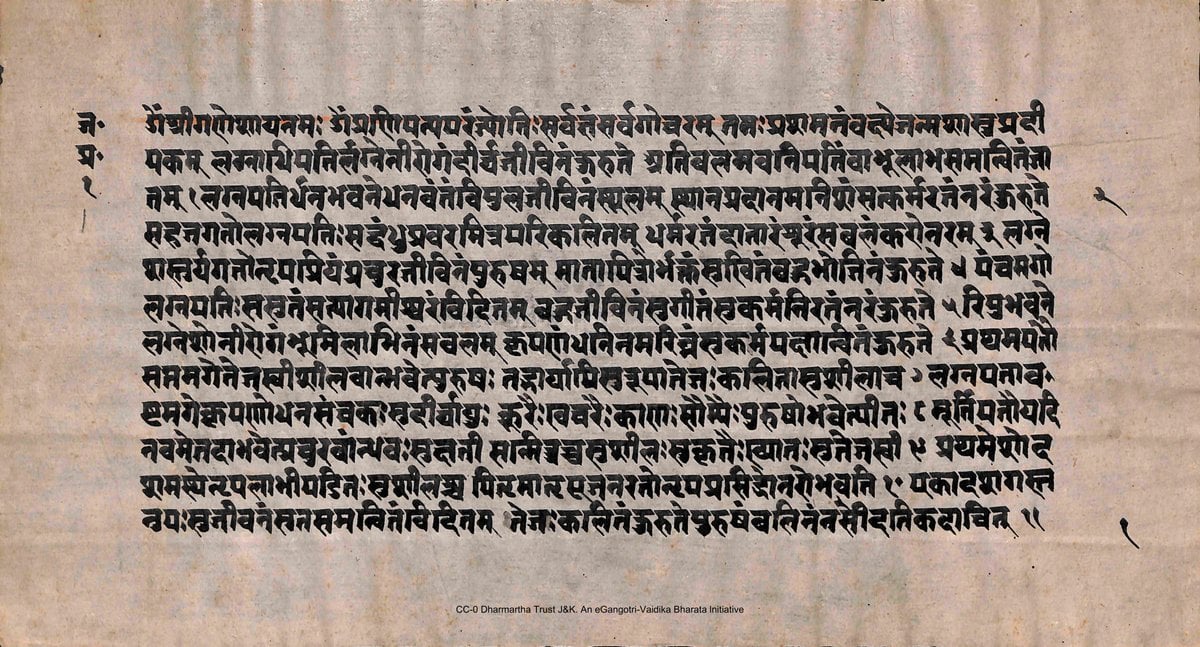 ज॰
प्र॰
१
ॐश्रीगणेशायनमः ॐप्रणिपत्यपरंज्योतिःसर्वज्ञंसर्वगोचरम् ततःप्रणामनंवक्ष्येजन्मशास्त्रप्रदी
पकम् लग्नाधिपतिर्लग्नेनीरोगंदीर्घजीविनंकुरुते अतिबलमवनिपतिंवाभूलाभसमन्वितंजा
तम् १ लग्नपतिर्धनभवनेधनवंतंविपुलजीविनंस्थूलम् स्थानप्रदानमनिशंसत्कर्मरतंनरंकुरुते २
सहजगतोलग्नपतिःसद्बंधुप्रवरमित्रपरिकलितम् धर्मरतंदातारंशूरंसबलंकरोतिनरम् ३ लग्ने
शस्तुर्यगतोनृपप्रियंप्रचुरजीविनंपुरुषम् मातापित्रोर्भक्तंसुखितंबहुभोजिनंकुरुते ४ पंचमगो
लग्नपतिःससुतंसत्यागमीश्वरंविदितम् बहुजीविनंसुगीतंसुकर्मनिरतंनरंकुरुते ५ रिपुभवने
लग्नेशोनीरोगंभूमिलाभिनंसबलम् कृपणंधनिनमरिघ्नंसुकर्मपक्षान्वितंकुरुते ६ प्रथमपतौ
सप्तमगेतेजस्वीशीलवान्भवेत्पुरुषः तद्भार्यापिसुरूपातेजःकलितासुशीलाच ७ लग्नपतावा
ष्टमगेकृपणोधनसंचकःसुदीर्घायुः क्रूरैःखचरैःकाणःसौम्यैःपुरुषोभवेत्पीतः ८ मूर्तिपतौयदि
नवमेतदाभवेत्प्रचुरबांधवःसुकृती सन्मित्रश्चसुशीलःसुकृतैःख्यातःसुतेजस्वी ९ प्रथमेशेद
शमस्थेनृपलाभीपंडितःसुशीलश्च पितृमातृपूजनरतोनृपप्रसिद्धोनरोभवति १॰ एकादशगस्तनु
नृपःसुजीवनंसुतसमन्वितंविदितम् तेजःकलितंकुरुतेपुरुषंबलिनंनसीदतिकदाचित् ११
१
CC-0 Dharmartha Trust J&K. An eGangotri-Vaidika Bharata Initiative